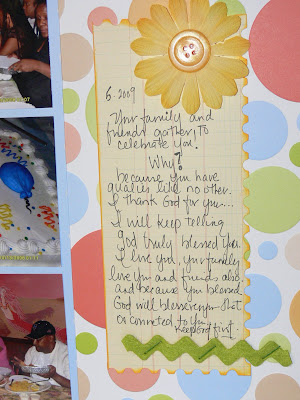 6-2009
Your family and
friends gather to
celebrate you.
Why?
because you have
qualies like no other.
I thank God for you...
I will keep telling
god truly blessed you.
I love you, your family
love you and friends also
and because you blessed
God will bless everyone that
or connected to you
keep God first.